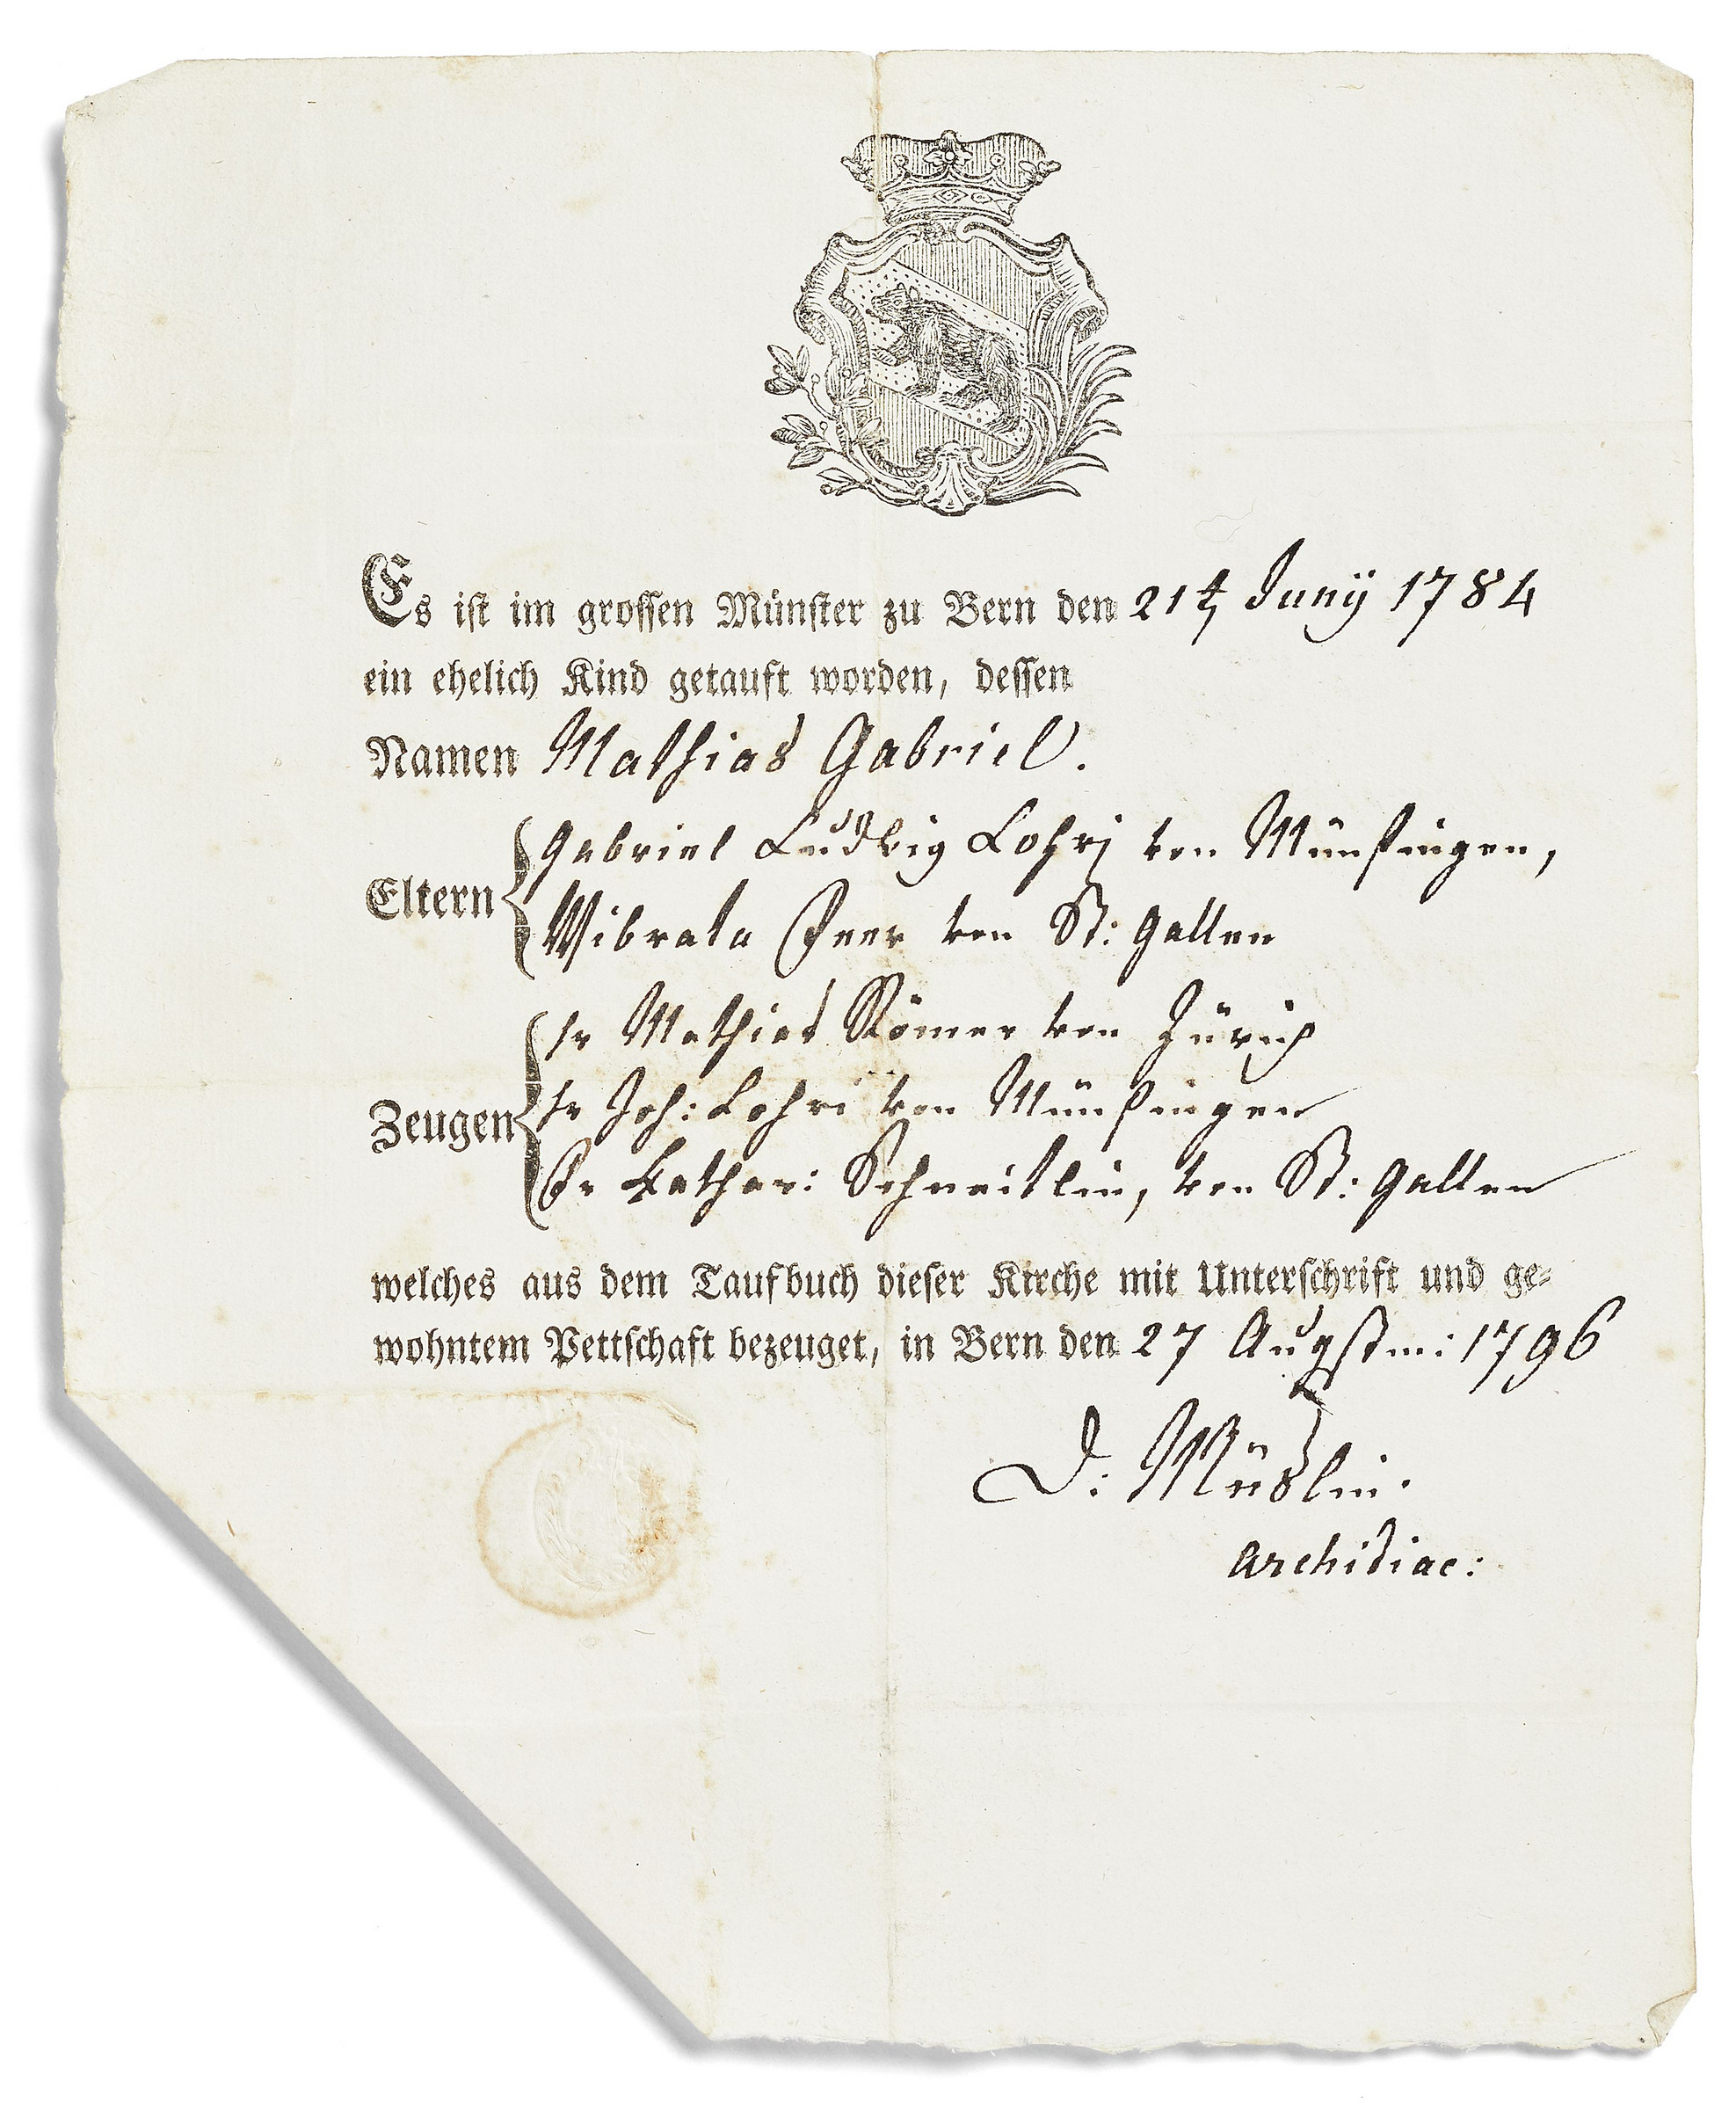 Es ist im grossen Münster zu Bern den 21t Junÿ 1784
ein ehelich Kind getauft worden, dessen
Namen Mathias Gabriel.
Eltern
Gabriel Ludwig Lohrj von Münsingen,
Wibrata Feer von St: Gallen
Zeugen
Hr Mathias Römer von Zürich
Hr Joh: Lohri von Münsingen
Fr Cathar: Schneitlin, von St: Gallen
welches aus dem Taufbuch dieser Kirche mit Unterschrift und ge-
wohntem Pettschaft bezeuget, in Bern den 27 Augstm: 1796
D: Müslin.
Archidiac: